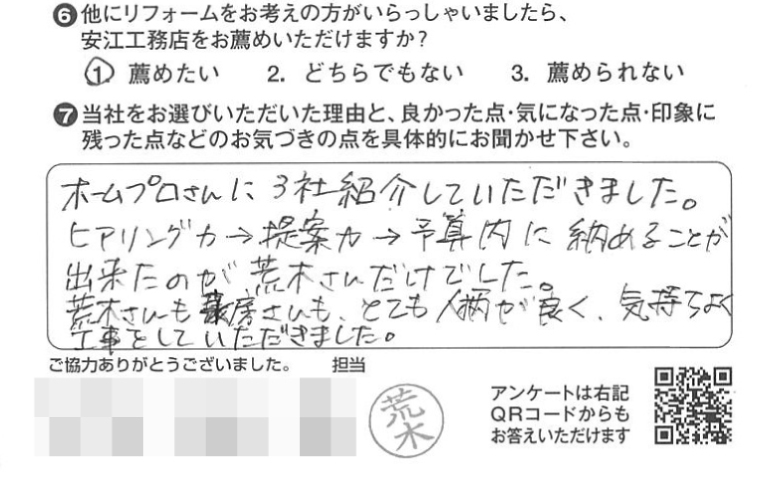 ❻他にリフォームをお考えの方がいらっしゃいましたら、
安江工務店をお薦めいただけますか?
1. 薦めたい 2. どちらでもない 3. 薦められない
❼当社をお選びいただいた理由と、良かった点・気になった点・印象に
残った点などのお気づきの点を具体的にお聞かせ下さい。
ホームプロさんに3社紹介していただきました。
ヒアリング力→提案力→予算内に納めることが
出来たのが荒木さんだけでした。
荒木さんも房さんも、とても人柄が良く、気持ちよく
工事をしていただきました。
ご協力ありがとうございました。 担当
荒木
アンケートは右記
QRコードからも
お答えいただけます